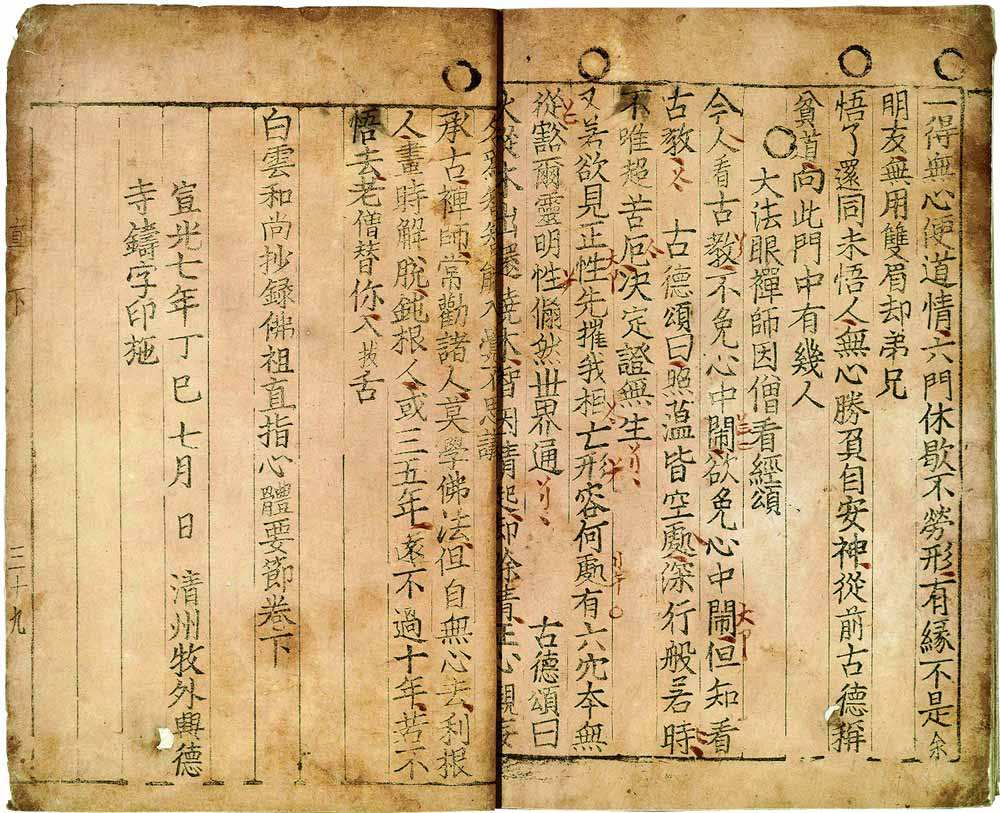 一得無心便道情六門休歇不勞形有緣不是余
明友無用雙眉却弟兄
悟了還同未悟人無心勝負自安神從前古德稱
貧道向此門中有幾人
大法眼禪師因僧看經頌
今人看古教不免心中鬧欲免心中鬧但知看
古教 古德頌曰照蘊皆空處深行般若時
不唯超苦厄决定證無生
又若欲見正性先摧我相亡形容何處有六穴本無
從豁爾靈明性翛然世界通 古德頌曰
木出還燒木智因情起却除情正心觀妄
智能入覺不思議
承古禪師常勸諸人莫學佛法但自無心去利根
人晝時解脫鈍根人或三五年遠不過十年苦不
悟去老僧替你入拔舌
白雲和尚抄録佛祖直指心體要節卷下
宣光七年丁巳七月 日 清州牧外興德
寺鑄字印施
直 下 三十九